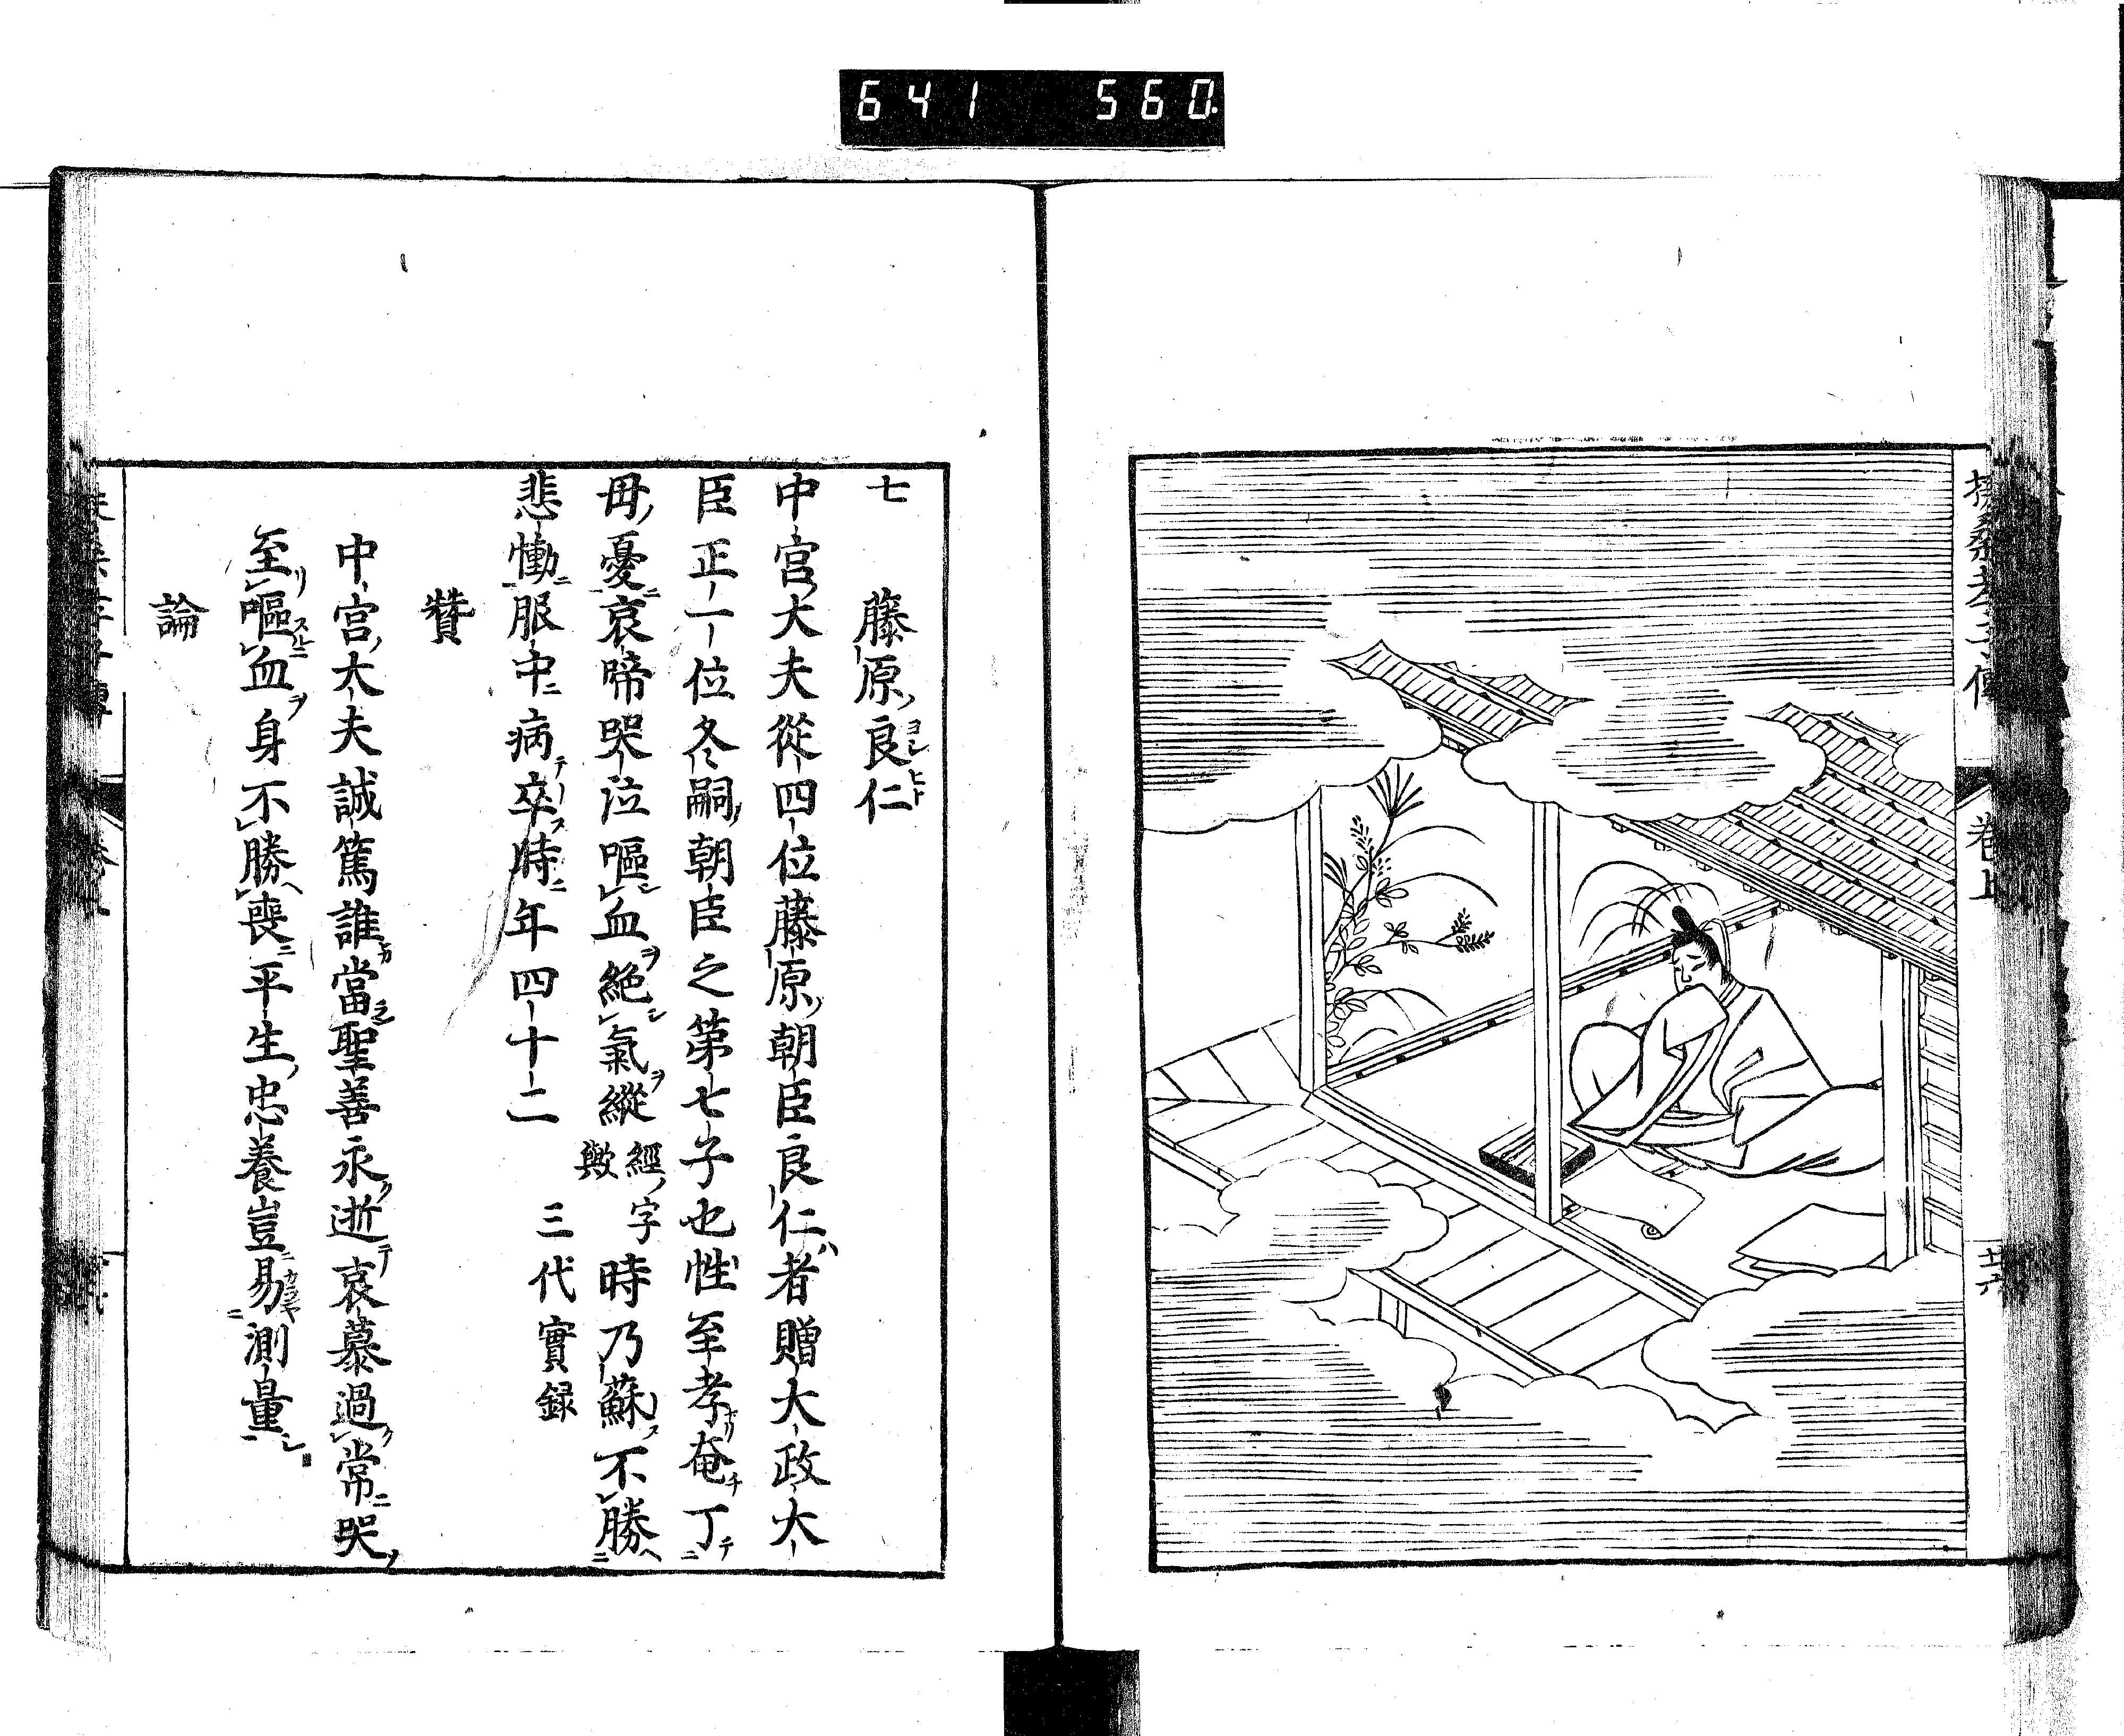 641 560
卷上
廿六
七 藤原良仁
中宮大夫從四位藤原朝臣良仁者贈大政大
臣正一位冬嗣朝臣之第七子也性至孝奄丁
毋憂哀啼哭泣嘔血絶氣縱經字歟時乃蘇不勝
悲慟服中病卒時年四十二 三代實録
贊
中宮大夫誠篤誰當聖善永逝哀慕過常哭
至嘔血身不勝喪平生忠養豈易測量
論